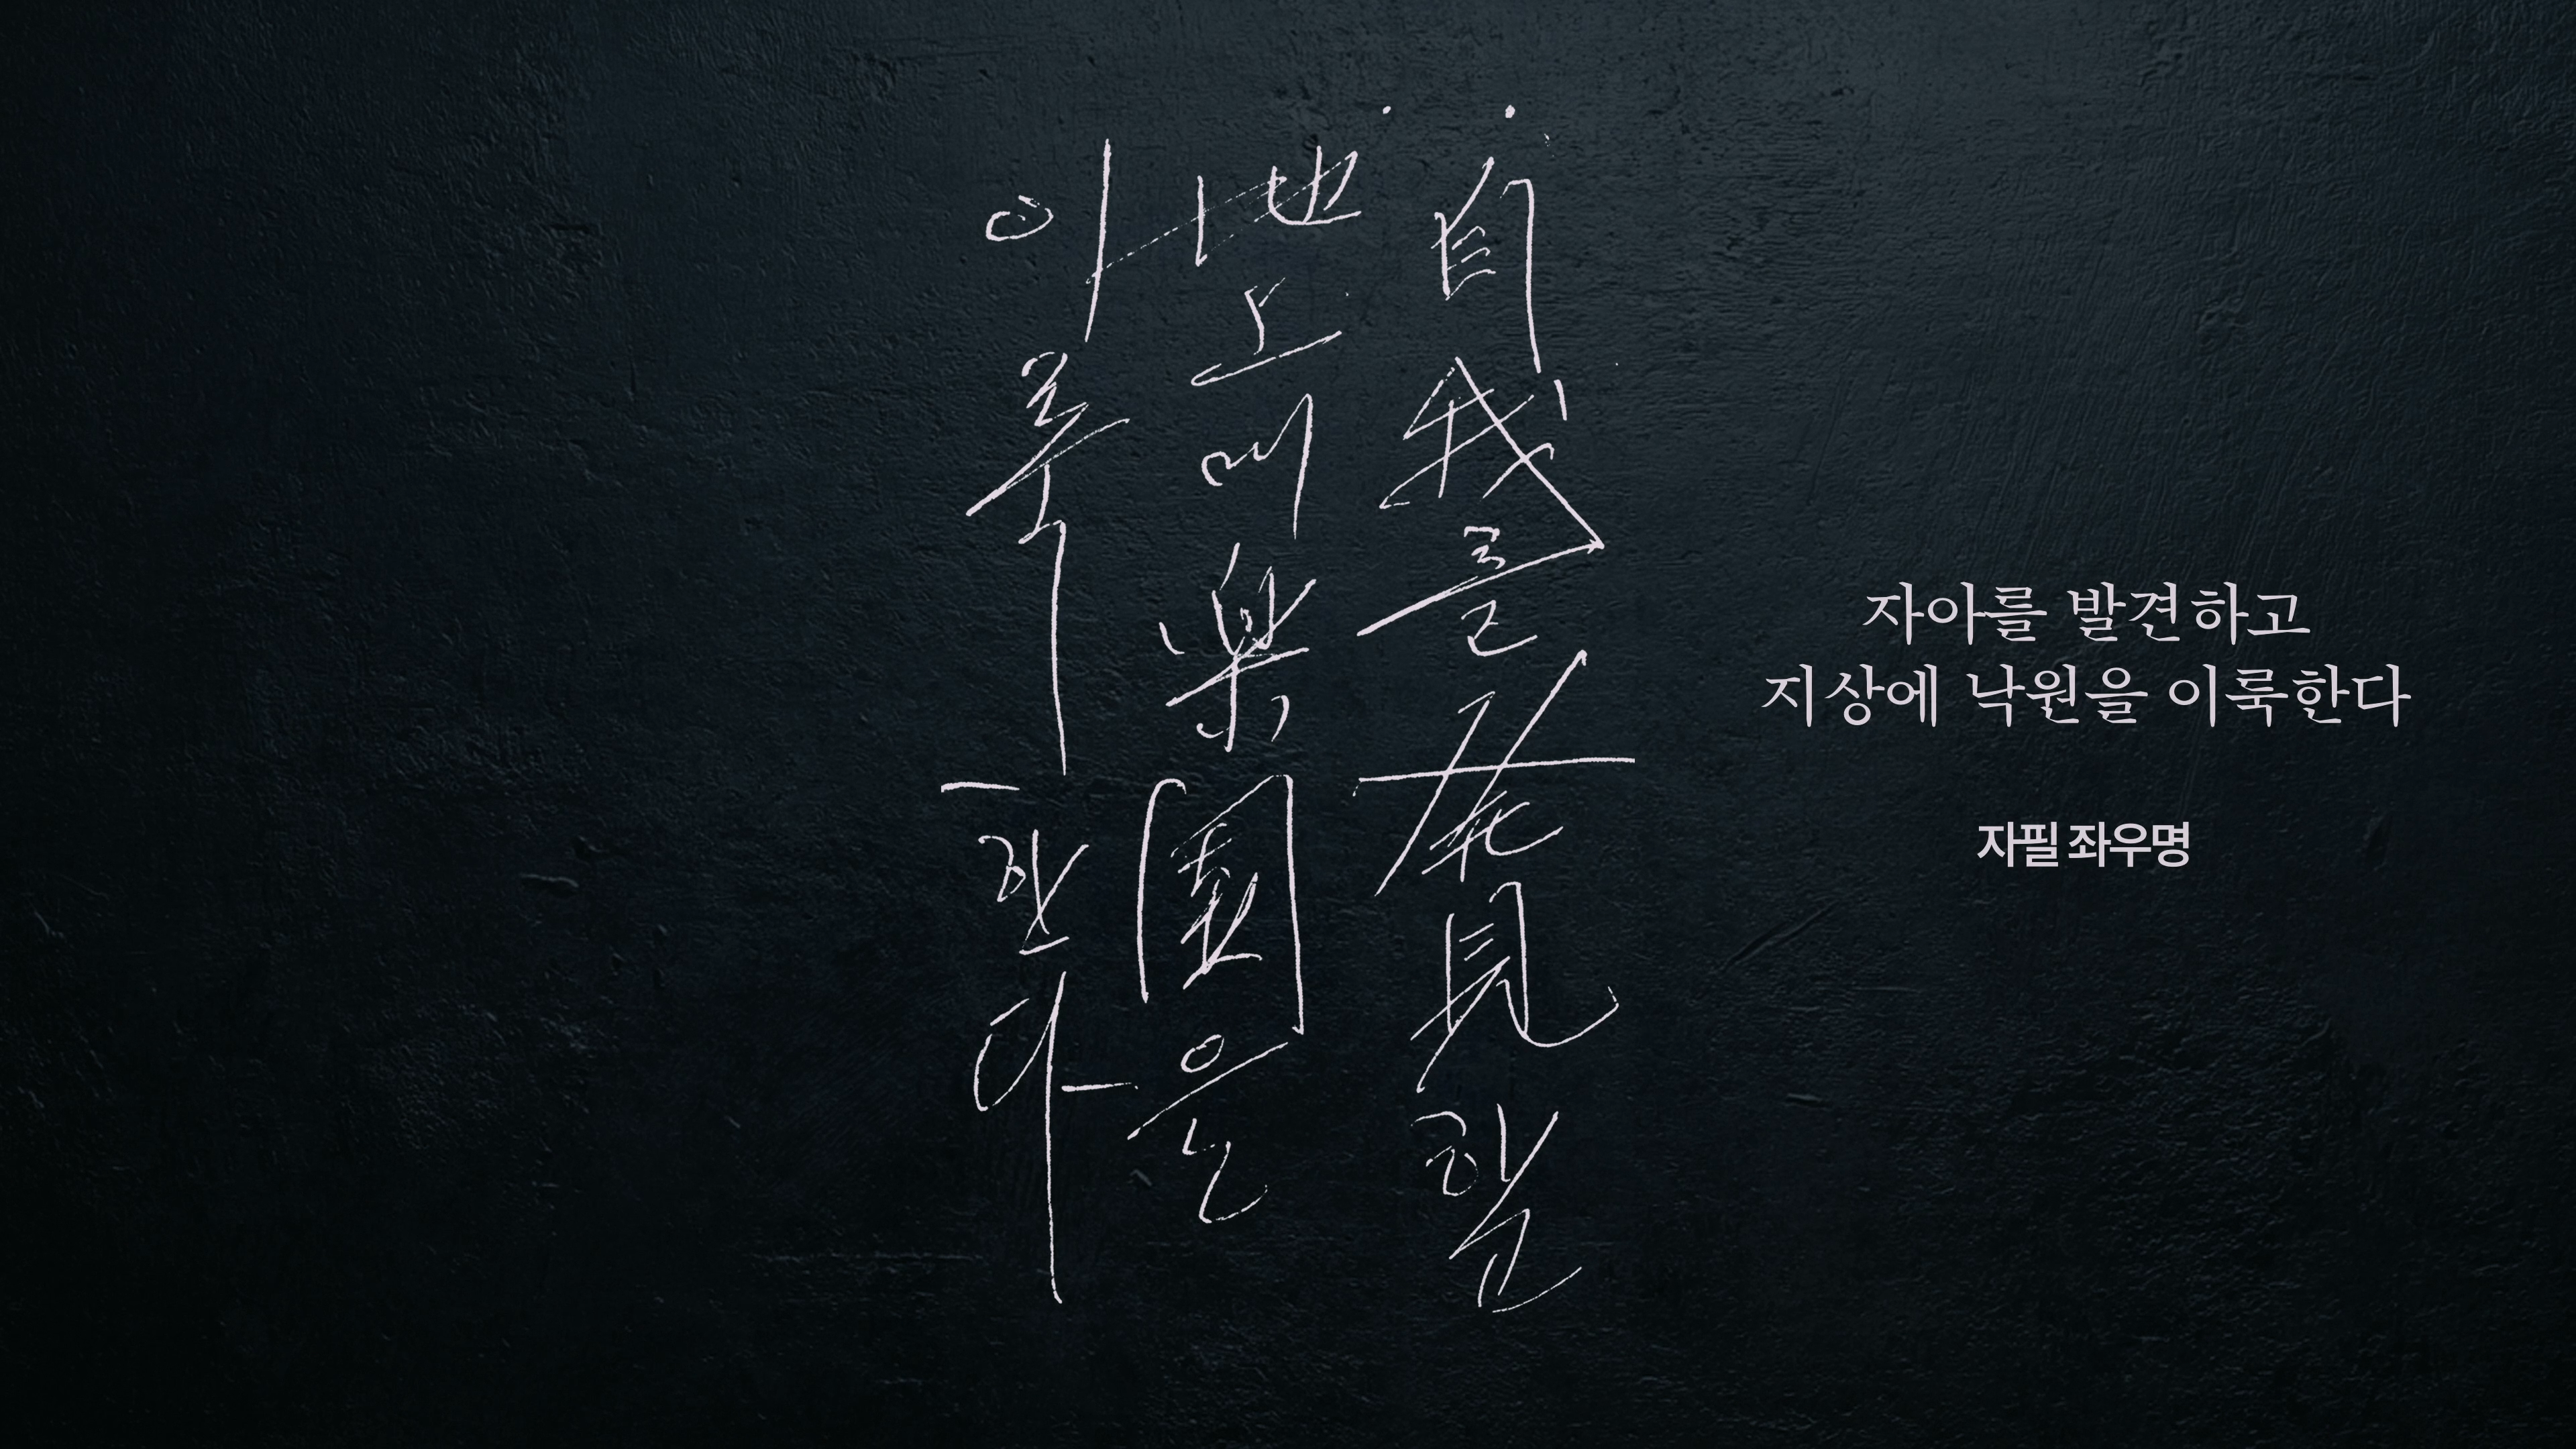 自我를 發見하고
地上에 樂園을
이룩한다
자아를 발견하고
지상에 낙원을 이룩한다
자필 좌우명